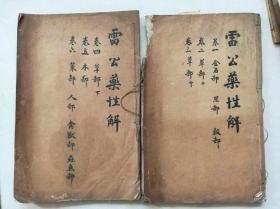 雷公藥性解
卷一 金石部 菓部 穀部
卷二 草部上
卷三 草部中
雷公藥性解
卷四 草部下
卷五 木部
卷六 菜部 人部 禽獸部 虫魚部